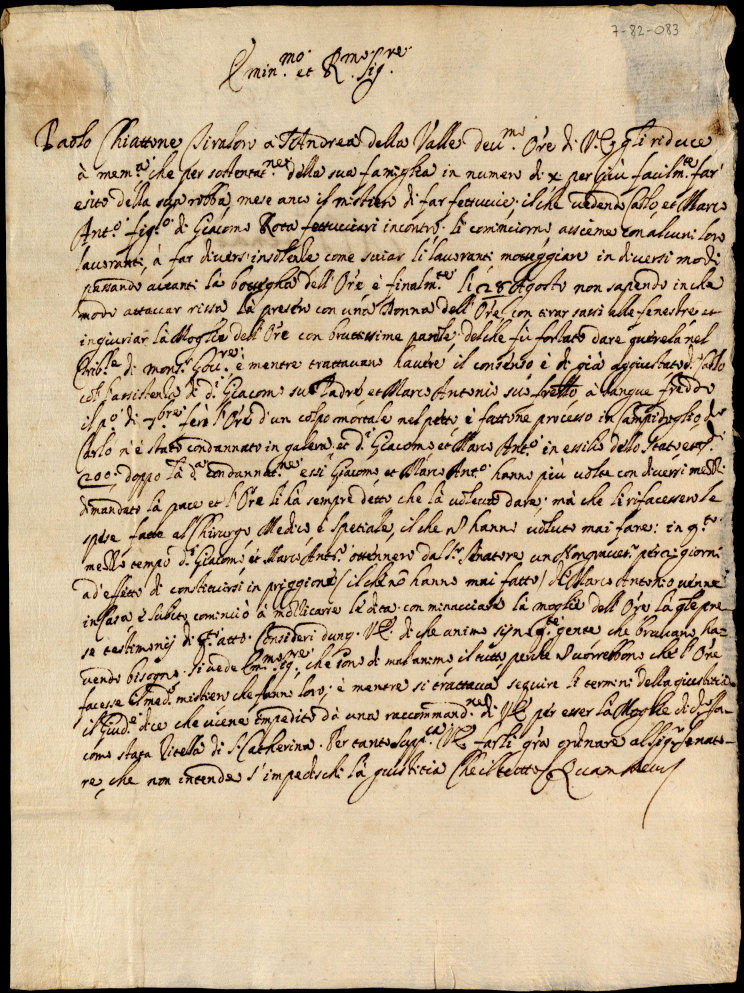 7-82-083
Emin.mo et R.mo Sig.re
Paolo Chiattone à S. Andrea della Valle deu.mo Ore di V.E. gli riduce
à mem.a che per sostentat.ne della sua famiglia in numero di x per più facilm.te far
esito della sua robba, mese anco il mistiero di far fettuccie. il che vedendo Carlo et Marco
Ant.o fig.o di Giacomo Rota fettucciari incontro. li cominciorno assieme con alcuni loro
lauoranti, à far diuers' insolenze come suiar li lauoranti motteggiare in diuersi modi
passando auanti la bottegha dell'Ore è finalm.te li 28 Agosto non sapendo in che
modo attaccar rissa la presero con una Donna dell'Ore con tirar sassi alle fenestre et
ingiuriar la Moglie dell'Ore con bruttissime parole. del che fù forzato dare querela nel
Trib.le di Mons.r Gou.re, è mentre trattauano hauere il consenso è di già aggiustato d. Carlo
coll'assistenza di d. Giacomo suo Padre et Marco Antonio suo frello à sangue freddo
il p.o di 7bre ferì l'Ore d'un colpo mortale nel petto è fattone processo in Campidoglio d.o
Carlo n'è stato condannato in galera et d. Giacomo et Marco Ant.o in essilio dello Stato
200. doppo la d.a condannat.ne essi Giacomo et Marco Ant.o hanno più uolte con diuersi mezzi
dimandato la pace et l'Ore li hà sempre detto che la uoleua dare, mà che li rifacessero le
spese fatte al Chirurgo Medico è spetiale, il che n hanno uoluto mai fare: in q.to
mezzo tempo d. Giacomo et Marco Ant.o ottennero dal S.r Senatore un giorni
ad'effetto di constituirsi in priggione (il che nō hanno mai fatto) Marco Antonio uenne
in Casa è subito cominciò à mozzicarse le dita con minacciare la moglie dell'Ore la q.le pre-
se testimonij di q.to atto. Consideri dunq. V.E. di che animo sijno q.te gente che bruciano ha-
uendo bisogno. si uede Em.mo Sig.re che sono di mal animo il tutto perche n uorrebbono che l'Ore
facesse il med.o mistiero che fanno loro. è mentre si trattaua seguire li termini della giustitia
il Giud.e dice che uiene impedito dà una raccommand.ne di V.E. per esser la Moglie di d.o Gia-
como stata Zitella di S. Catherina. Per tanto supp.ca V.E. farli gr̄a ordinare al Sig.r Senato-
re, che non intende s'impedischi la giustitia Che il tutto Quam Deus